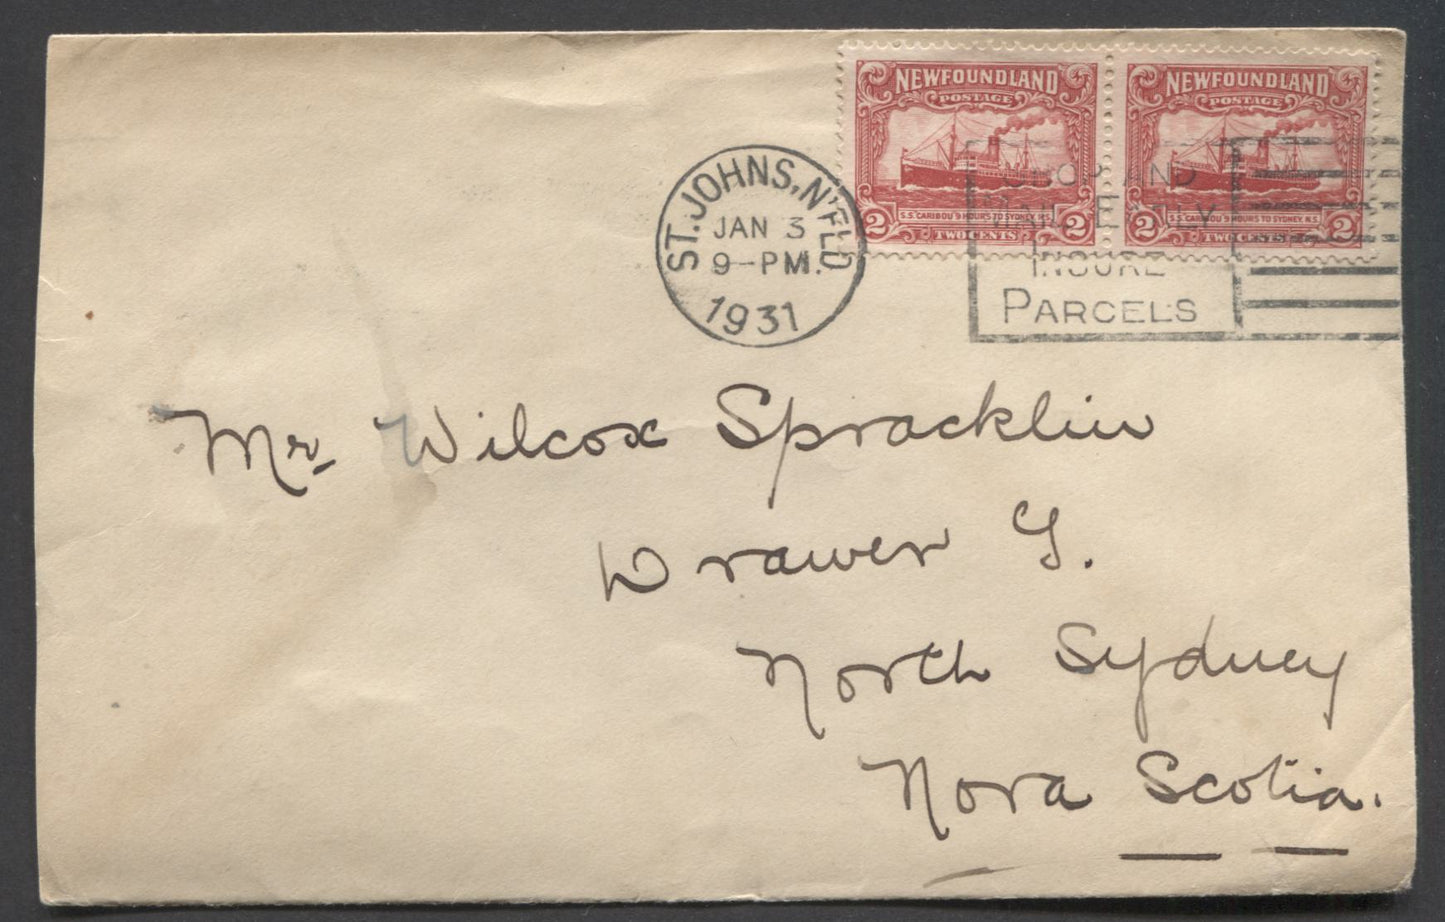 NEWFOUNDLAND
POSTAGE
2 S.S. CARIBOU 9 HOURS TO SYDNEY, N.S. 2
TWO CENTS
NEWFOUNDLAND
POSTAGE
2 S.S. CARIBOU 9 HOURS TO SYDNEY, N.S. 2
TWO CENTS
ST. JOHNS, N'FLD
JAN 3
9-PM.
1931
SHOP AND
MAIL EARLY
INSURE
PARCELS
Mr Wilcox Spracklin
Drawer G.
North Sydney
Nova Scotia.